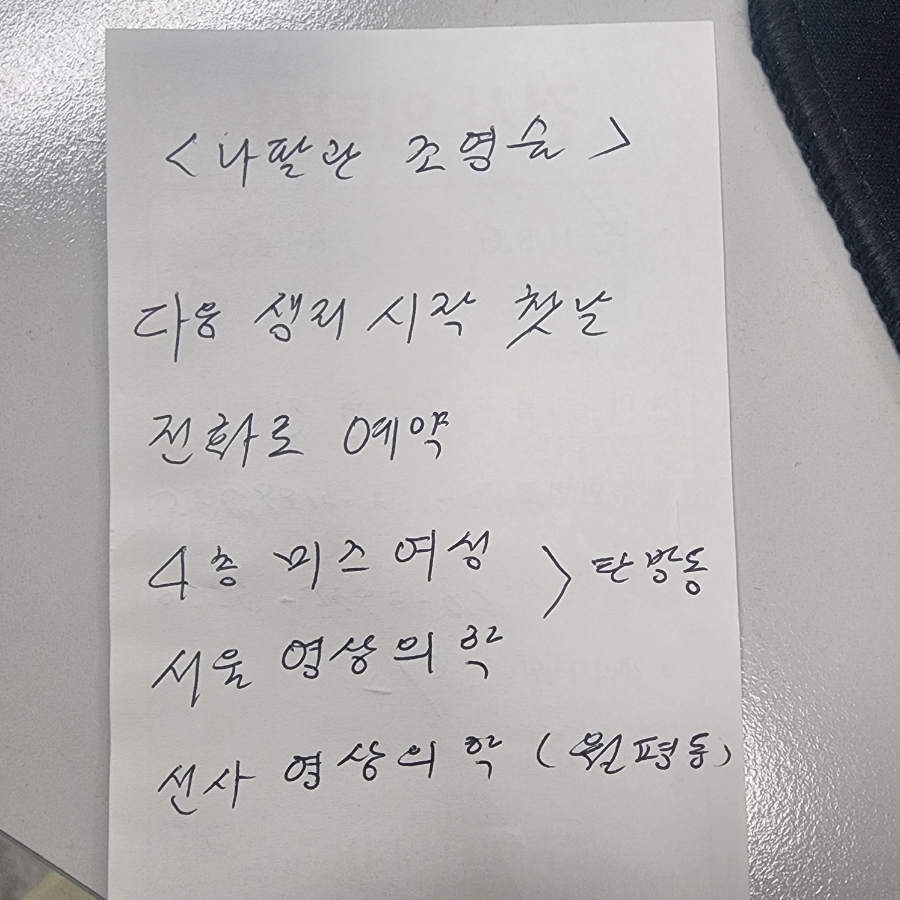 <나팔관 조영술>
다음 생리 시작 첫날
전화로 예약
4층 미즈여성 > 탄방동
서울 영상의학
선사 영상의학 (월평동)